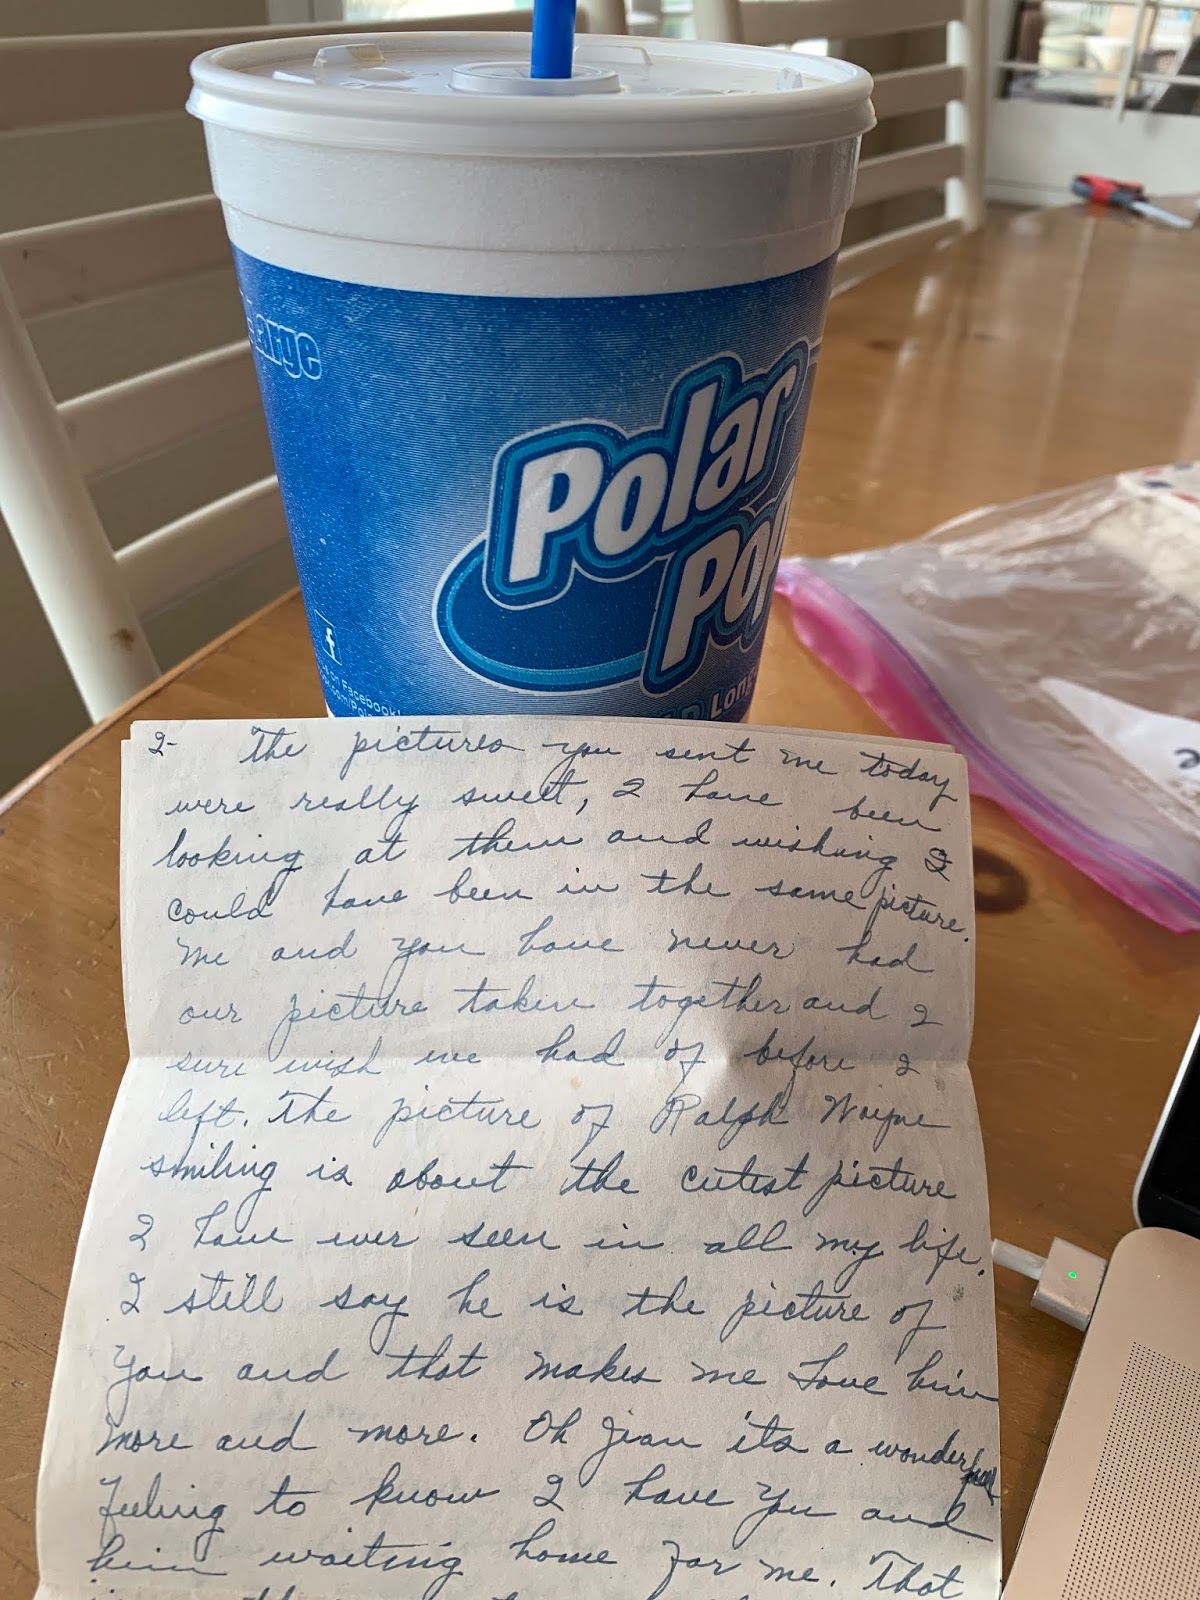 Large
Polar
Pop
f
us on Facebook!
Long
2- The pictures you sent me today
were really sweet, I have been
looking at them and wishing I
could have been in the same picture.
Me and you have never had
our picture taken together and I
sure wish we had of before I
left. The picture of Ralph Wayne
smiling is about the cutest picture
I have ever seen in all my life.
I still say he is the picture of
you and that makes me Love him
more and more. Oh Jean its a wonderful
feeling to know I have you and
him waiting home for me. That